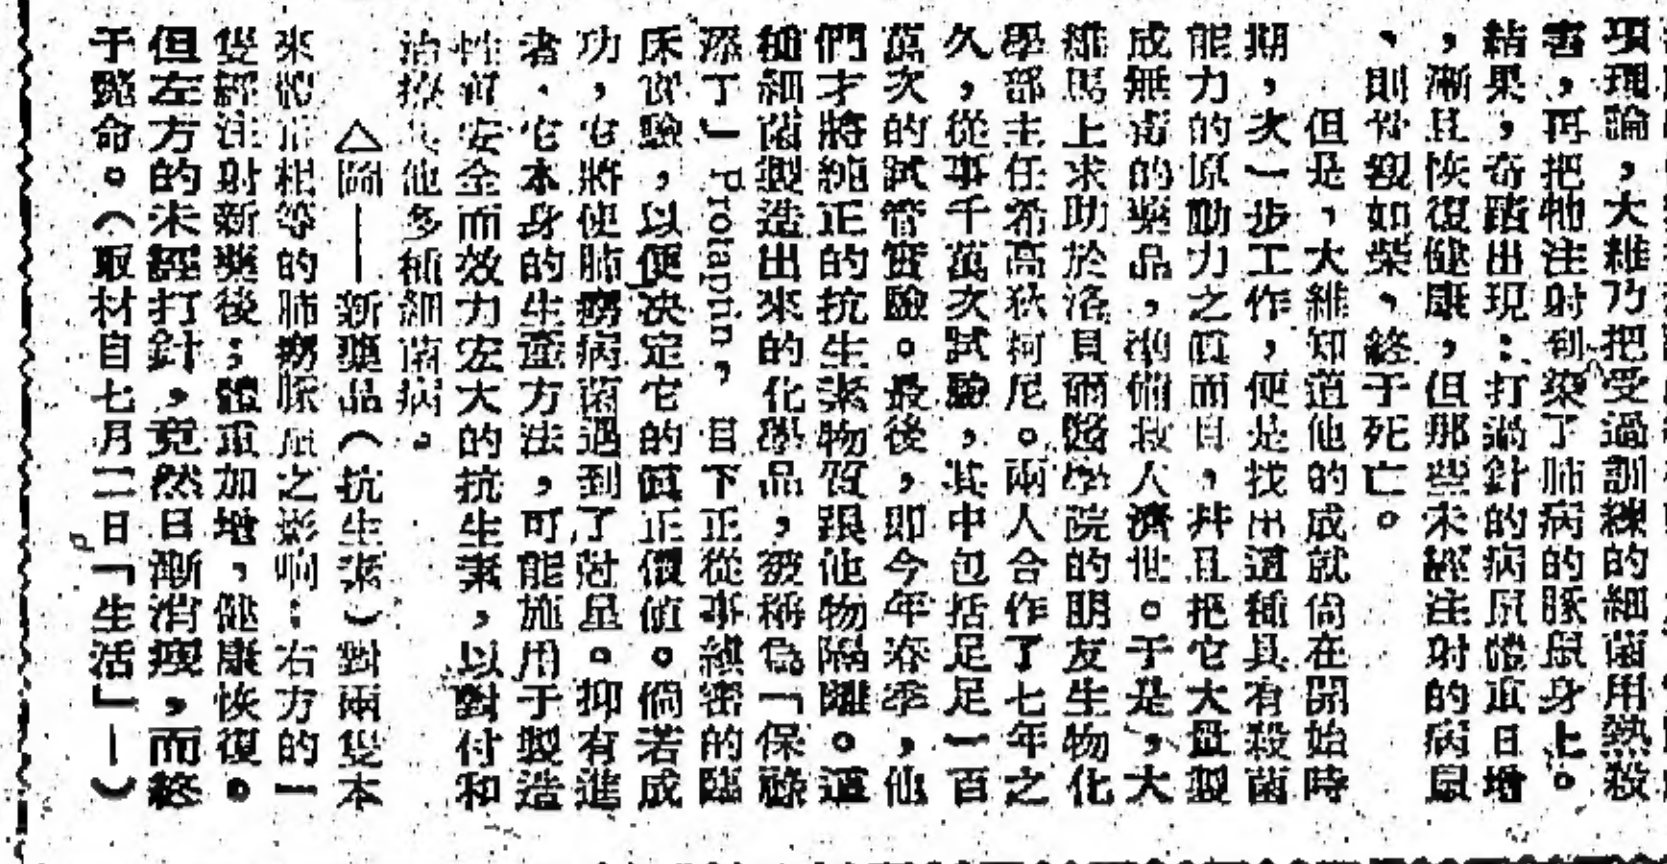 項理論，大維乃把受過訓練的細菌用熱殺
害，再把牠注射到染了肺病的豚鼠身上。
結果，奇蹟出現：打過針的病鼠體重日增
，漸且恢復健康，但那些未經注射的病鼠
，則骨瘦如柴，終于死亡。
但是，大維知道他的成就尙在開始時
期，次一步工作，便是找出這種具有殺菌
能力的原動力之眞面目，幷且把它大量製
成無毒的藥品，準備救人濟世。于是，大
維馬上求助於洛貝爾醫學院的朋友生物化
學部主任希高狄柯尼。兩人合作了七年之
久，從事千萬次試驗，其中包括足足一百
萬次的試管實驗。最後，卽今年春季，他
們才將純正的抗生素物質跟他物隔離。這
種細菌製造出來的化學品，被稱爲「保祿
添丁」Protaptin，目下正從事縝密的臨
床實驗，以便决定它的眞正價値。倘若成
功，它將使肺癆病菌遇到了尅星。抑有進
者，它本身的生產方法，可能施用于製造
性質安全而效力宏大的抗生素，以對付和
治療其他多種細菌病。
△圖——新藥品（抗生素）對兩隻本
來體重相等的肺癆豚鼠之影响：右方的一
隻經注射新藥後；體重加增，健康恢復。
但左方的未經打針，竟然日漸消瘦，而終
于斃命。（取材自七月二日「生活」—）